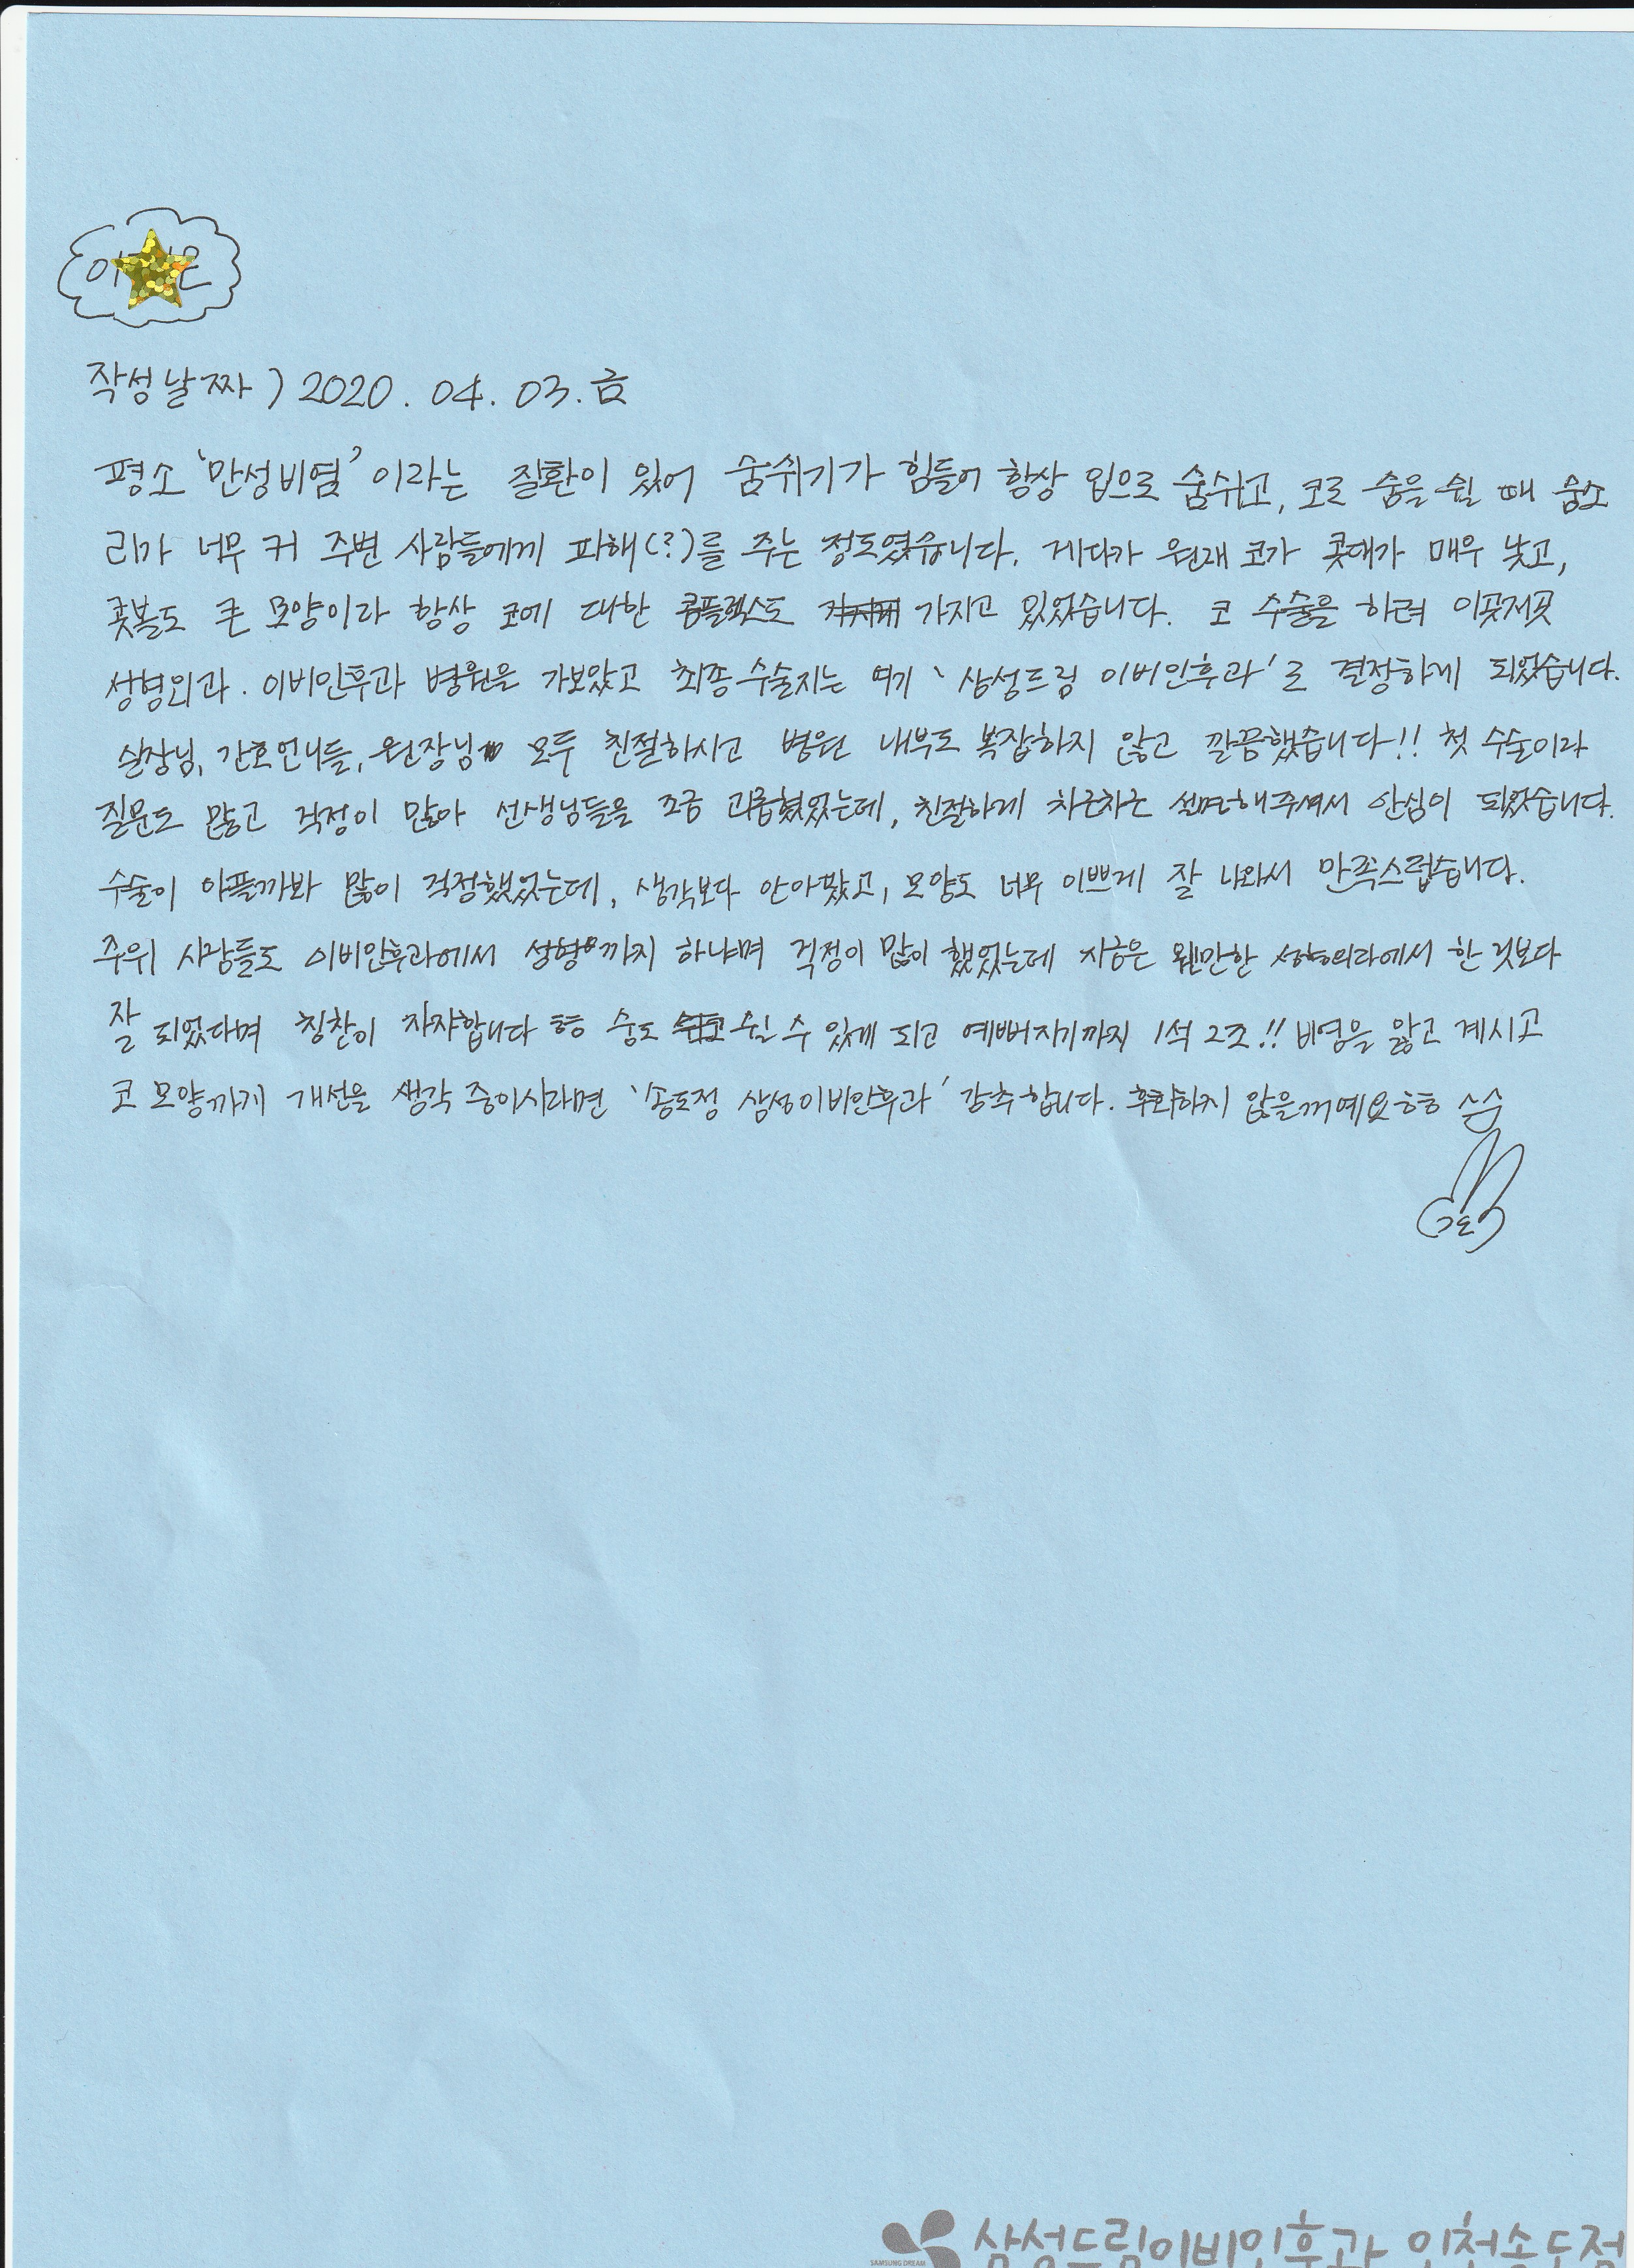 작성날짜) 2020. 04. 03. 금
평소 '만성비염' 이라는 질환이 있어 숨쉬기가 힘들어 항상 입으로 숨쉬고, 코로 숨을 쉴 때 숨소
리가 너무 커 주변 사람들에게 피해(?)를 주는 정도였습니다. 게다가 원래 코가 콧대가 매우 낮고,
콧볼도 큰 모양이라 항상 코에 대한 콤플렉스도 가지고 있었습니다. 코 수술을 하려 이곳저곳
성형외과. 이비인후과 병원을 가보았고 최종 수술지는 여기 '삼성드림 이비인후과'로 결정하게 되었습니다.
실장님, 간호언니들, 원장님 모두 친절하시고 병원 내부도 복잡하지 않고 깔끔했습니다!! 첫 수술이라
질문도 많고 걱정이 많아 선생님들을 조금 괴롭혔었는데, 친절하게 차근차근 설명해주셔서 안심이 되었습니다.
수술이 아플까봐 많이 걱정했었는데, 생각보다 안아팠고, 모양도 너무 이쁘게 잘 나와서 만족스럽습니다.
주위 사람들도 이비인후과에서 성형까지 하냐며 걱정이 많이 했었는데 지금은 웬만한 성형외과에서 한 것보다
잘 되었다며 칭찬이 자자합니다 ㅎㅎ 숨도 쉴 수 있게 되고 예뻐지기까지 1석 2조!! 비염을 앓고 계시고
코 모양까지 개선을 생각 중이시라면 '송도점 삼성이비인후과' 강추합니다. 후회하지 않을꺼예요ㅎㅎ ^^
SAMSUNG DREAM 삼성드림이비인후과 인천송도점